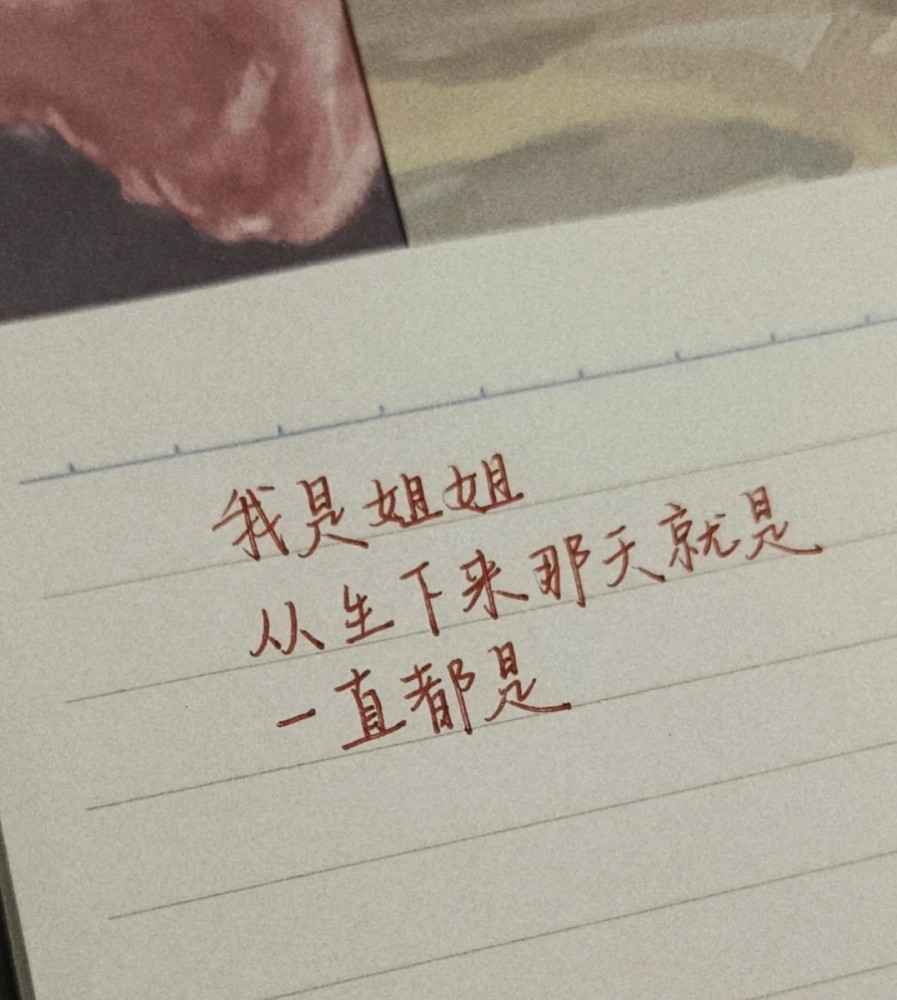 我是姐姐
从生下来那天就是
一直都是